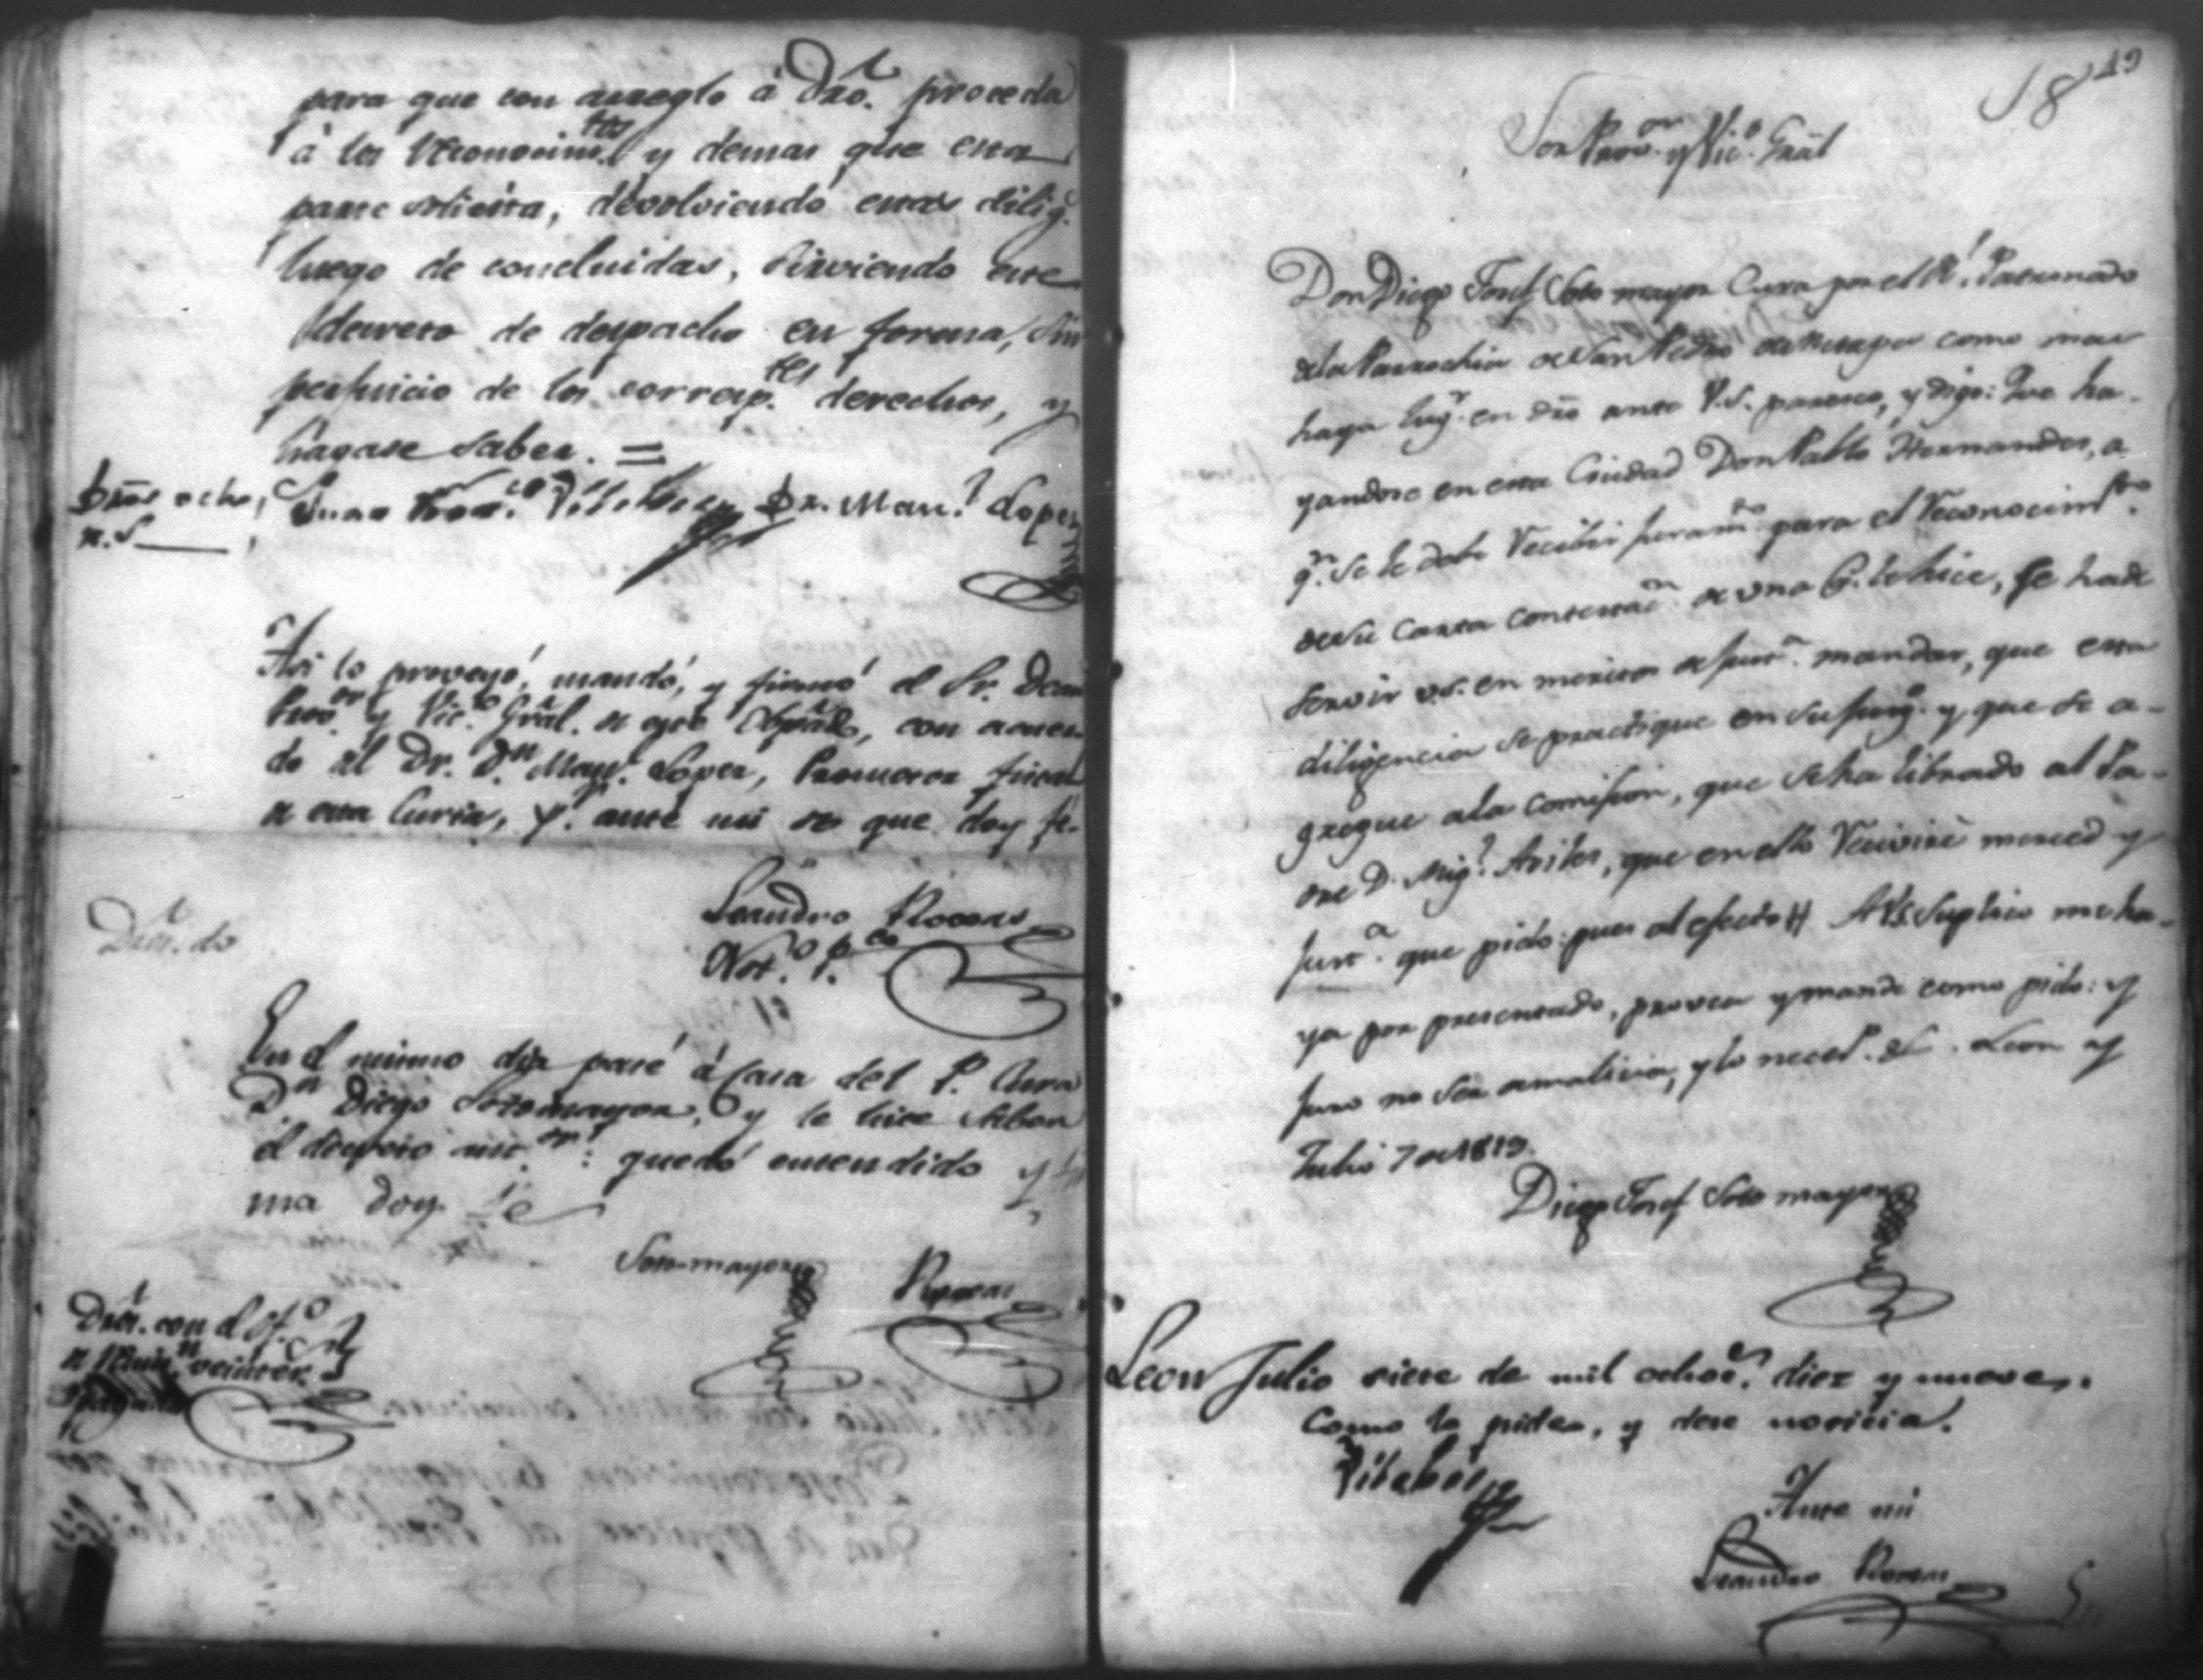 para que con arreglo á Dro. proceda
á los reconocim.tos y demas que esta
parte solicita, devolviendo estas dilig.s
luego de concluidas, sirviendo este
decreto de despacho en forma, sin
perjuicio de los corresp.tes derechos, y
hagase saber. =
Dros ocho,
r.s
Juan Fran.co Vilchez Dr. Man.l Lopez
Asi lo proveyó, mandó, y firmó el Sr. Dean
Prov.or y Vic.o Gral. de este Obpâdo, con acuer
do del Dr. D.n Man.l Lopez, Promotor fiscal
de esta Curia, p.r ante mi de que doy fe.
Leandro Rocas
Not.o p.co
Dros. do
En el mismo dia pasé á casa del P. Cura
D.n Diego Sotomayor, y le hice saber
el decreto ant.or: quedó entendido y fir
ma doy fe
Sotomayor Rocas
Dros. con el
18 19
Sor Prov.or y Vic.o Grãl
Don Diego Josef Soto mayor Cura por el R.l Patronado
de la Parrochia de San Pedro de Metapa como mas
haya lug.r en dro ante V.S. paresco, y digo: Que ha-
yandose en esta Ciudad Don Pablo Hernandes, a
q.n se le debe recibir juram.to para el reconocim.to
de su carta contestac.n de una q. le hice, se ha de
servir V.S. en meritos de just.a mandar, que esta
diligencia se practique en su juzg.o y que se a-
gregue a la comision, que se ha librado al Pa-
dre D. Mig.l Aviles, que en ello recivirè merced y
just.a que pido: pues al efecto A V.S. Suplico me ha-
ya por presentado, provea y mande como pido: y
juro no ser de malicia, y lo neces.o &. Leon y
Julio 7 de 1819.
Diego Josef Soto mayor
Leon Julio siete de mil ochoc.s diez y nueve.
Como lo pide, y dese noticia.
Vilchez
Ante mi
Leandro Rocas